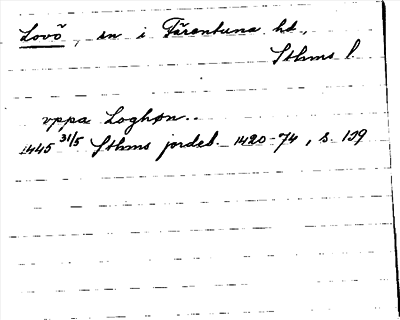 Lovö, sn i Färentuna hd,
Sthms l.
uppa Loghøn..
1445 31/5 Sthms jordeb. 1420-74, s. 129